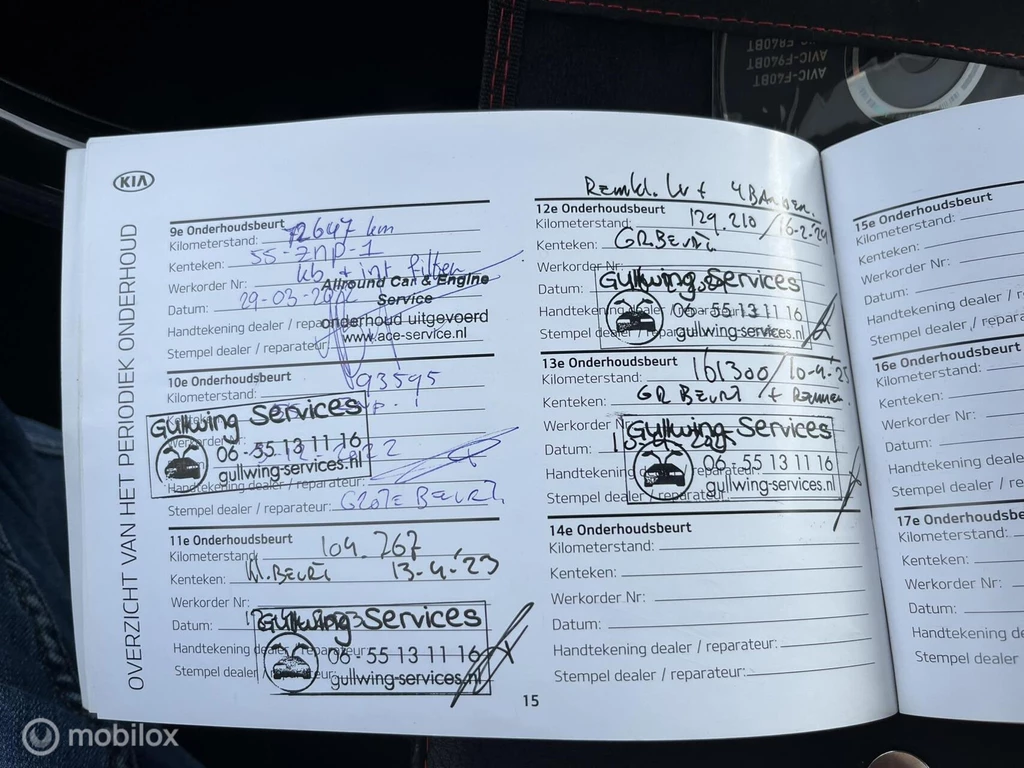 AVIC-F840BT
AVIC-F940BT
AVIC-F40BT
KIA
OVERZICHT VAN HET PERIODIEK ONDERHOUD
9e Onderhoudsbeurt
Kilometerstand: 72647 km
Kenteken: 55-ZNP-1
kb + int filter
Werkorder Nr:
Allround Car & Engine
Service
Datum: 29-03-
Handtekening dealer /
onderhoud uitgevoerd
www.ace-service.nl
Stempel dealer / reparateur:
10e Onderhoudsbeurt
Kilometerstand: 93595
Kenteken:
Gullwing Services
Werkorder
06-55 13 11 16
gullwing-services.nl
Handtekening dealer / reparateur:
Stempel dealer / reparateur: GROTE BEURT.
11e Onderhoudsbeurt
Kilometerstand: 104.767
Kenteken: Kl. BEURT 13-4-'23
Werkorder Nr:
Datum:
Gullwing Services
Handtekening dealer / reparateur:
06-55 13 11 16
Stempel dealer / reparateur:
gullwing-services.nl
Remkl. LV + 4 BANDEN.
12e Onderhoudsbeurt
Kilometerstand: 129.210 / 16-2-'24
Kenteken: GR.BEURT
Werkorder
Gullwing Services
Datum:
Handtekening dealer / reparateur:
06-55 13 11 16
Stempel dealer / reparateur:
gullwing-services.nl
13e Onderhoudsbeurt
Kilometerstand: 161300 / 10-4-'25
Kenteken: GR BEURT + REMMEN.
Werkorder N
Gullwing Services
Datum:
06-55 13 11 16
Handtekening dealer / reparateur:
gullwing-services.nl
Stempel dealer / reparateur:
14e Onderhoudsbeurt
Kilometerstand:
Kenteken:
Werkorder Nr:
Datum:
Handtekening dealer / reparateur:
Stempel dealer / reparateur:
15
15e Onderhoudsbeurt
Kilometerstand:
Kenteken:
Werkorder Nr:
Datum:
Handtekening dealer
Stempel dealer / repara
16e Onderhoudsbeurt
Kilometerstand:
Kenteken:
Werkorder Nr:
Datum:
Handtekening de
Stempel dealer /
17e Onderhoudsbe
Kilometerstand:
Kenteken:
Werkorder Nr:
Datum:
Handtekening de
Stempel dealer
mobilox